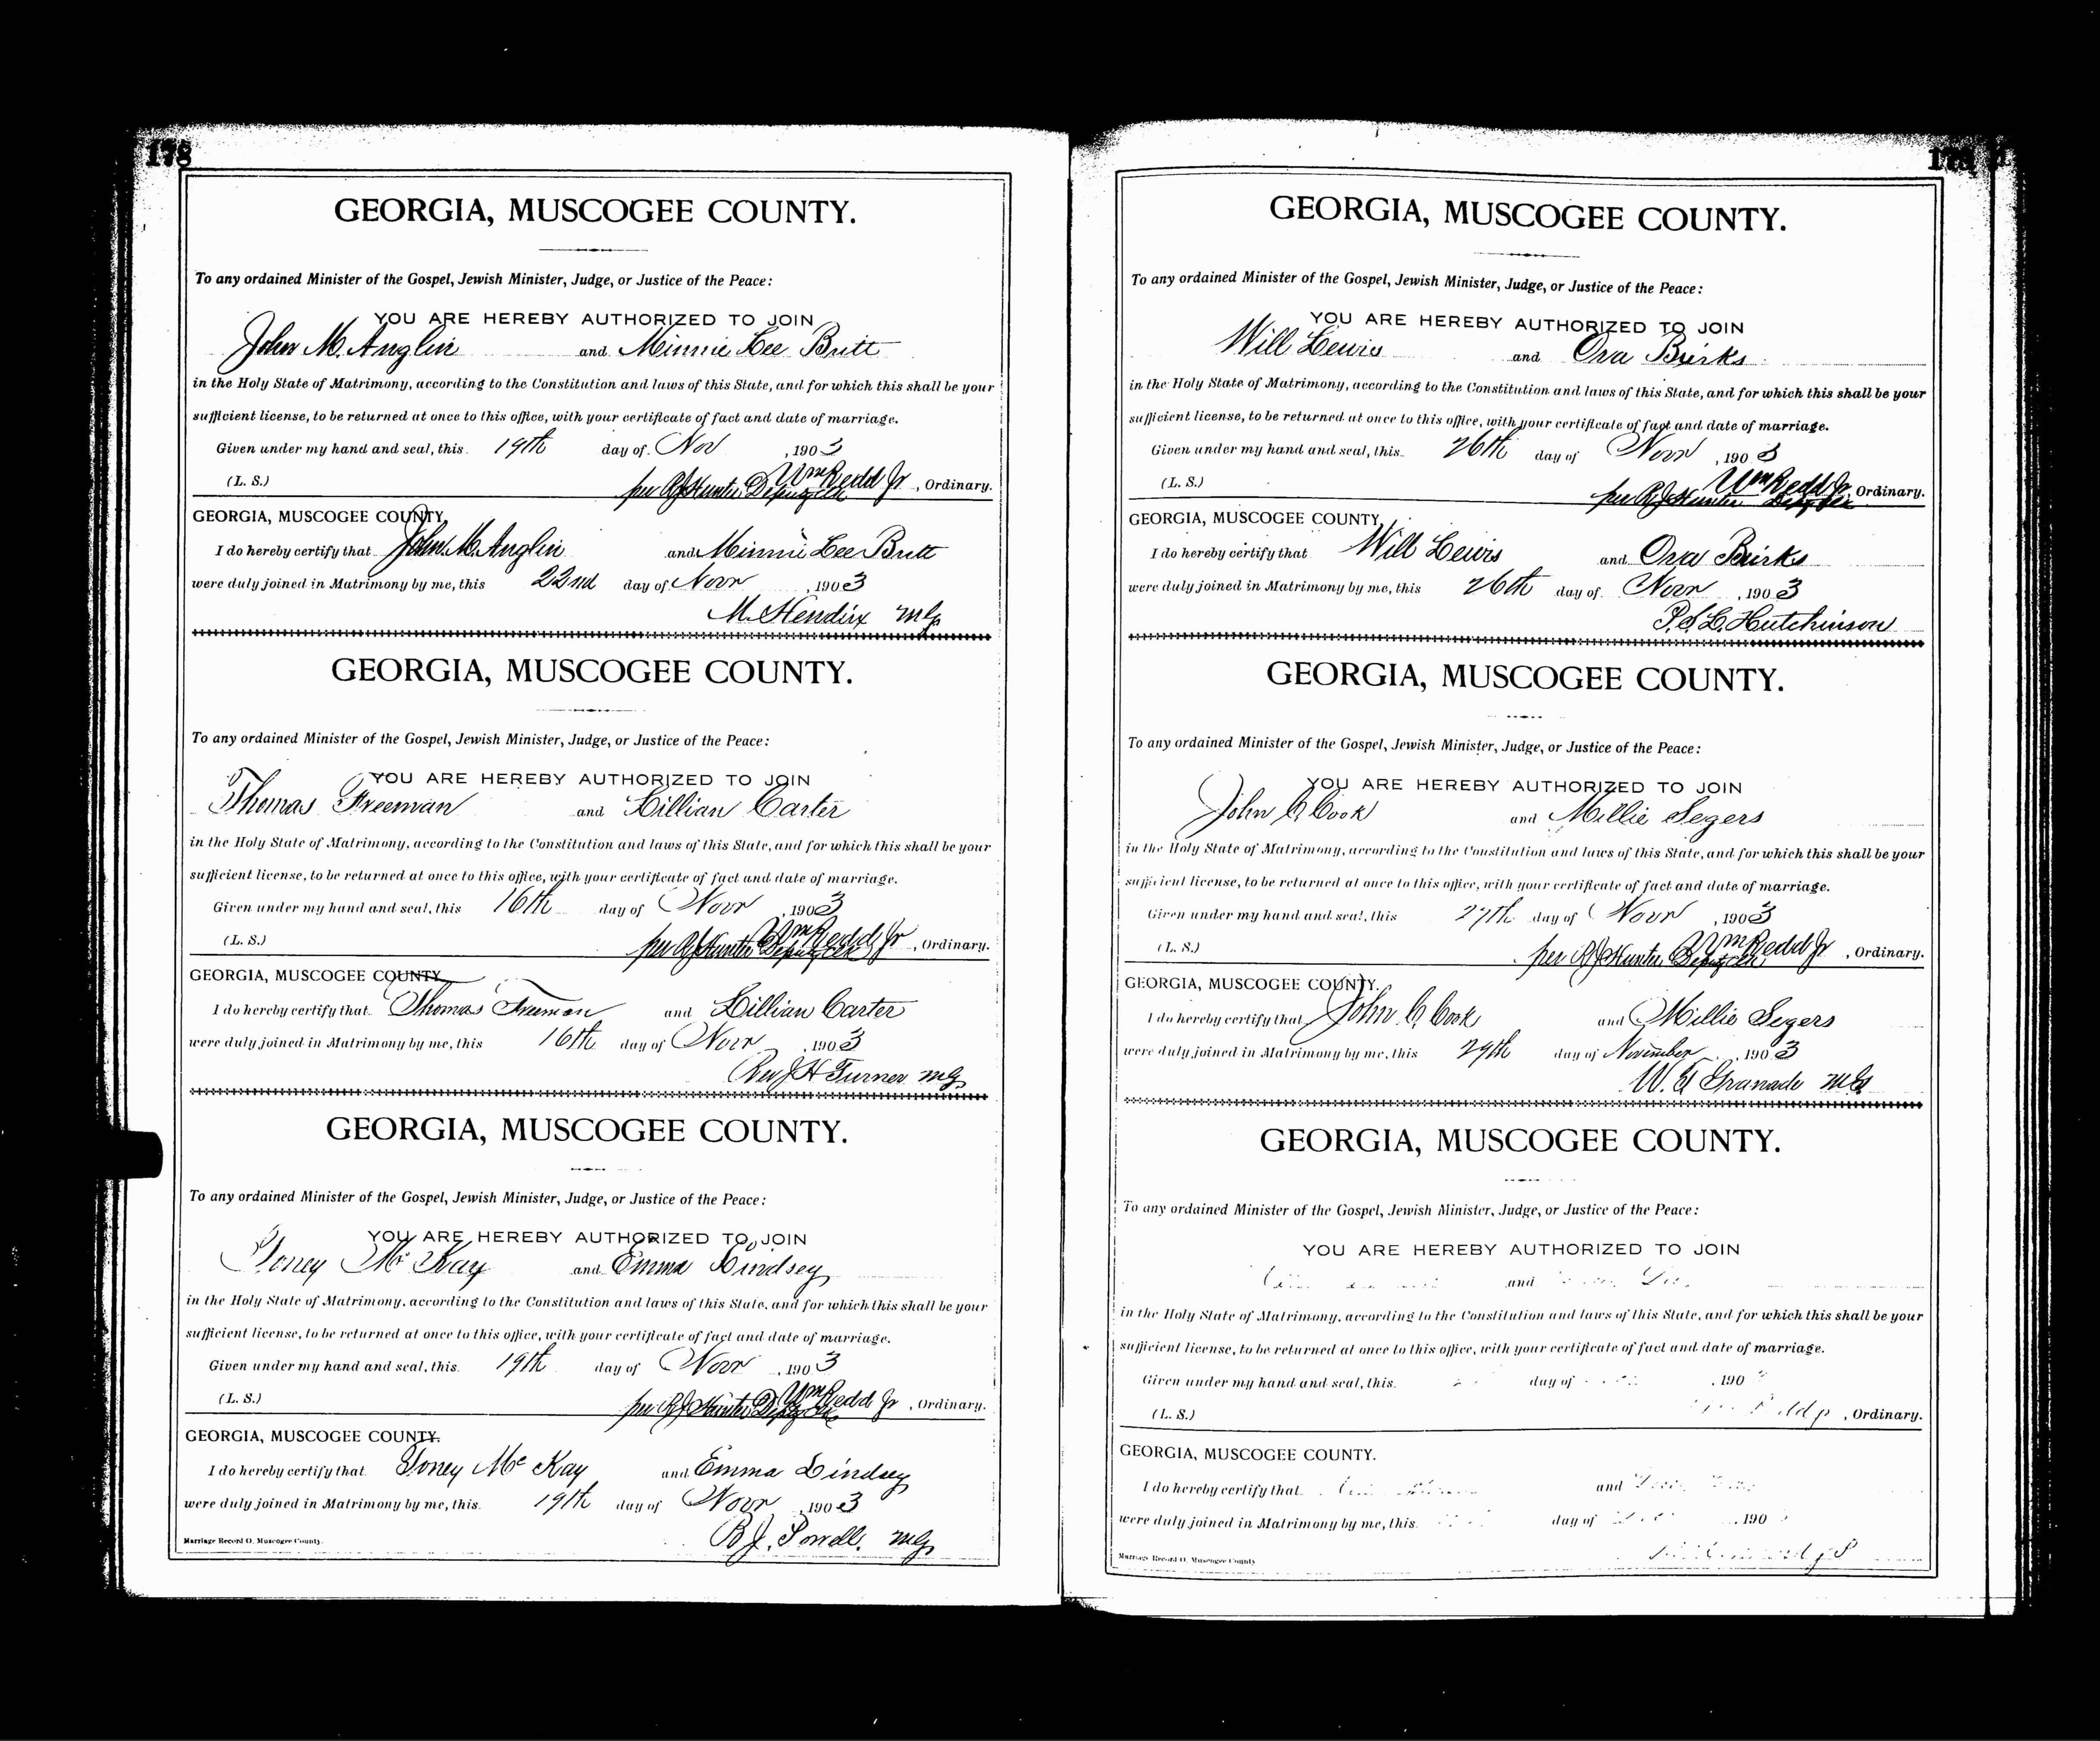 178
GEORGIA, MUSCOGEE COUNTY.
To any ordained Minister of the Gospel, Jewish Minister, Judge, or Justice of the Peace:
YOU ARE HEREBY AUTHORIZED TO JOIN
John M. Anglin and Minnie Lee Britt
in the Holy State of Matrimony, according to the Constitution and laws of this State, and for which this shall be your
sufficient license, to be returned at once to this office, with your certificate of fact and date of marriage.
Given under my hand and seal, this 19th day of Nov , 1903
(L. S.) Wm Redd Jr , Ordinary.
per R J Hunter Deputy Clk
GEORGIA, MUSCOGEE COUNTY,
I do hereby certify that John M. Anglin and Minnie Lee Britt
were duly joined in Matrimony by me, this 22nd day of Novr , 1903
M. Hendrix MG
GEORGIA, MUSCOGEE COUNTY.
To any ordained Minister of the Gospel, Jewish Minister, Judge, or Justice of the Peace:
YOU ARE HEREBY AUTHORIZED TO JOIN
Thomas Freeman and Lillian Carter
in the Holy State of Matrimony, according to the Constitution and laws of this State, and for which this shall be your
sufficient license, to be returned at once to this office, with your certificate of fact and date of marriage.
Given under my hand and seal, this 16th day of Novr , 1903
(L. S.) Wm Redd Jr , Ordinary.
per R J Hunter Deputy Clk
GEORGIA, MUSCOGEE COUNTY.
I do hereby certify that Thomas Freeman and Lillian Carter
were duly joined in Matrimony by me, this 16th day of Novr , 1903
Rev J H Turner MG
GEORGIA, MUSCOGEE COUNTY.
To any ordained Minister of the Gospel, Jewish Minister, Judge, or Justice of the Peace:
YOU ARE HEREBY AUTHORIZED TO JOIN
Toney Mc Kay and Emma Lindsey
in the Holy State of Matrimony, according to the Constitution and laws of this State, and for which this shall be your
sufficient license, to be returned at once to this office, with your certificate of fact and date of marriage.
Given under my hand and seal, this 19th day of Novr , 1903
(L. S.) Wm Redd Jr , Ordinary.
per R J Hunter Deputy Clk
GEORGIA, MUSCOGEE COUNTY.
I do hereby certify that Toney Mc Kay and Emma Lindsey
were duly joined in Matrimony by me, this 19th day of Novr , 1903
B. J. Powell. MG
Marriage Record O. Muscogee County.
GEORGIA, MUSCOGEE COUNTY.
To any ordained Minister of the Gospel, Jewish Minister, Judge, or Justice of the Peace:
YOU ARE HEREBY AUTHORIZED TO JOIN
Will Lewis and Ora Burks
in the Holy State of Matrimony, according to the Constitution and laws of this State, and for which this shall be your
sufficient license, to be returned at once to this office, with your certificate of fact and date of marriage.
Given under my hand and seal, this 26th day of Novr , 1903
(L. S.) Wm Redd Jr , Ordinary.
per R J Hunter Deputy Clk
GEORGIA, MUSCOGEE COUNTY,
I do hereby certify that Will Lewis and Ora Burks
were duly joined in Matrimony by me, this 26th day of Novr , 1903
Hutchinson
GEORGIA, MUSCOGEE COUNTY.
To any ordained Minister of the Gospel, Jewish Minister, Judge, or Justice of the Peace:
YOU ARE HEREBY AUTHORIZED TO JOIN
John C. Cook and Millie Segers
in the Holy State of Matrimony, according to the Constitution and laws of this State, and for which this shall be your
sufficient license, to be returned at once to this office, with your certificate of fact and date of marriage.
Given under my hand and seal, this 27th day of Novr , 1903
(L. S.) Wm Redd Jr , Ordinary.
per R J Hunter Deputy Clk
GEORGIA, MUSCOGEE COUNTY.
I do hereby certify that John C. Cook and Millie Segers
were duly joined in Matrimony by me, this 29th day of November , 1903
Granade MG
GEORGIA, MUSCOGEE COUNTY.
To any ordained Minister of the Gospel, Jewish Minister, Judge, or Justice of the Peace:
YOU ARE HEREBY AUTHORIZED TO JOIN
and
in the Holy State of Matrimony, according to the Constitution and laws of this State, and for which this shall be your
sufficient license, to be returned at once to this office, with your certificate of fact and date of marriage.
Given under my hand and seal, this day of , 190
(L. S.) , Ordinary.
GEORGIA, MUSCOGEE COUNTY.
I do hereby certify that and
were duly joined in Matrimony by me, this day of , 190
Marriage Record O. Muscogee County